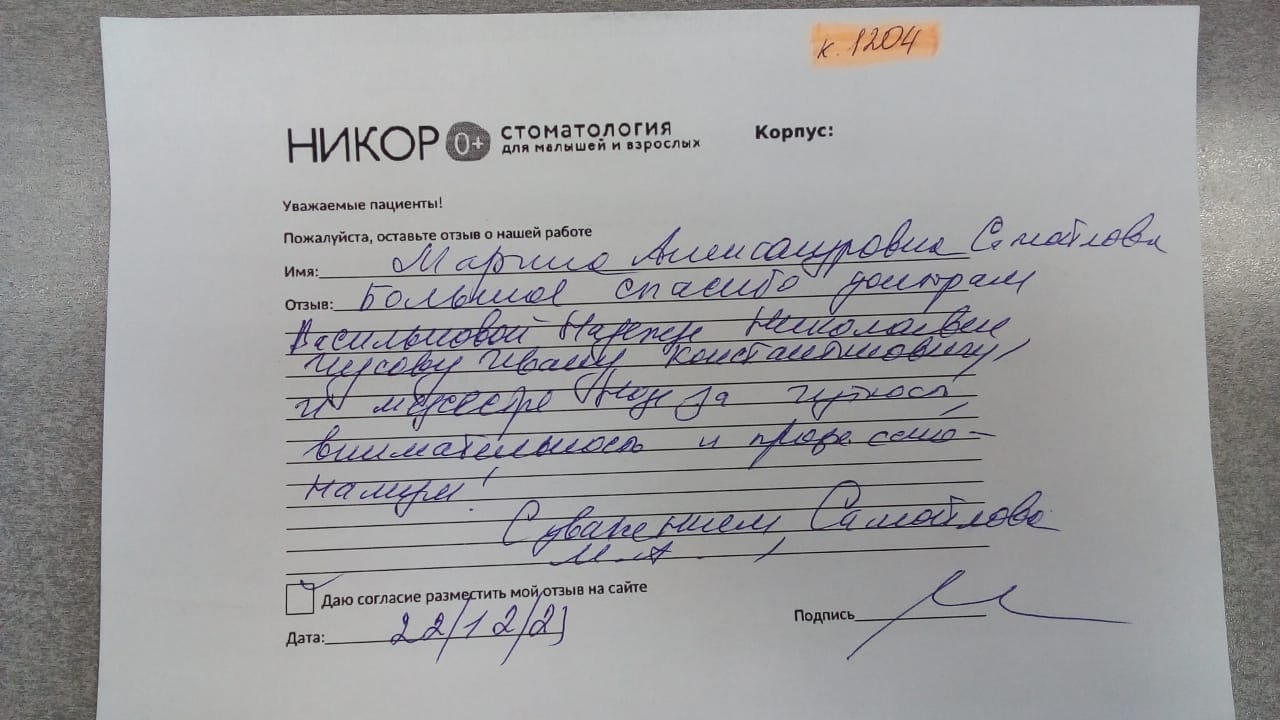 к. 1204
НИКОР 0+ СТОМАТОЛОГИЯ
для малышей и взрослых
Корпус:
Уважаемые пациенты!
Пожалуйста, оставьте отзыв о нашей работе
Имя: Марина Александровна Самойлова
Отзыв: Большое спасибо докторам
Васильковой Надежде Николаевне
Чусову Ивану Константиновичу,
и медсестре за чуткость,
внимательность и професси-
нализм!
С уважением Самойлова
М.А.
Даю согласие разместить мой отзыв на сайте
Дата: 22/12/23
Подпись